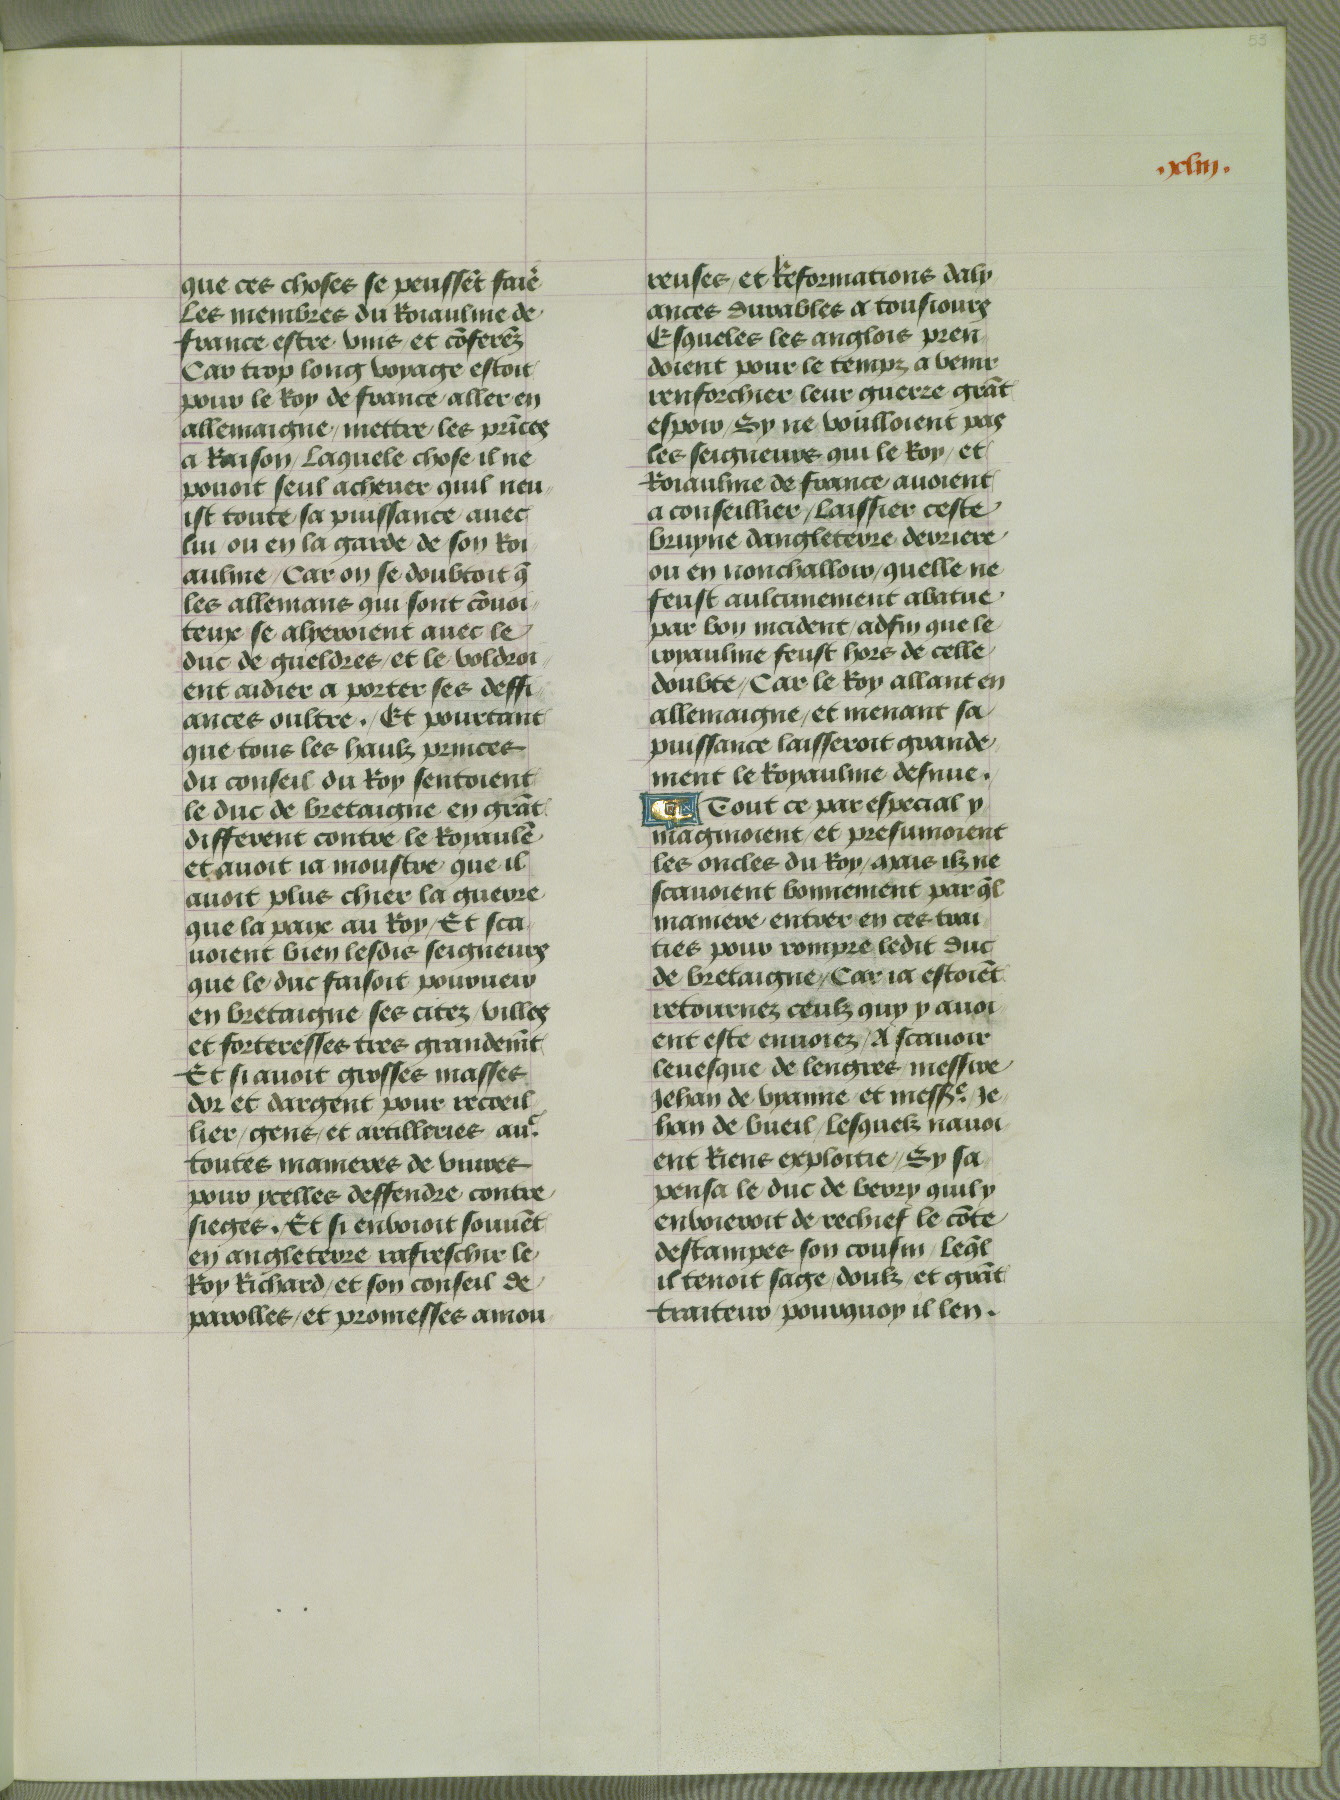 53
.xliii.
que ces choses se peussēt faiē
Les membres du Roiaulme de
france estre vnis et cōferēz
Car trop long voyage estoit
pour le Roy de france aller en
allemaigne / mettre les prīces
a Raison / Laquele chose il ne
pouoit seul acheuer quil neu
ist toute sa puissance auec
lui ou en la garde de son Roi
aulme / Car on se doubtoit q̄
les allemans qui sont cōuoi
teux se alyeroient auec le
duc de gueldres / et le voldroi
ent aidier a porter ses deffi
ances oultre . / Et pourtant
que tous les haulz princes
du conseil du Roy sentoient
le duc de bretaigne en grāt
different contre le Royaulē
et auoit ia moustre que il
auoit plus chier la guerre
que la paix au Roy / Et sca
uoient bien lesdis seigneurs
que le duc faisoit pourueir
en bretaigne ses citez / villes
et forteresses tres grandemt̄
Et si auoit grosses masses
dor et dargent pour recoeil
lier / gens / et artilleries auc̄.
toutes manieres de viures
pour ycelles deffendre contre
sieges . Et si enuoioit souuēt
en angleterre rafreschir le
Roy Richard / et son conseil de
parolles / et promesses amou
reuses / et Reformations daly
ances durables a tousiours
Esqueles les anglois pren
doient pour le tempz a venir
renforchier leur guerre grāt
espoir / Sy ne voulloient pas
les seigneurs qui le Roy / et
Roiaulme de france auoient
a conseillier / Laissier ceste
bruyne dangleterre derriere
ou en nonchalloir / quelle ne
feust aulcunement abatue
par bon incident / adfin que le
royaulme feust hors de celle
doubte / Car le Roy allant en
allemaigne / et menant sa
puissance laisseroit grande
ment le Royaulme desnue .
Tout ce par especial y
maginoient et presumoient
les oncles du Roy / mais ilz ne
scauoient bonnement par q̄l
maniere entrer en ces trai
ties pour rompre ledit duc
de bretaigne / Car ia estoiēt
retournez ceulz quy y auoi
ent este enuoiez / A scauoir
leuesque de lengres messire
Jehan de vyanne et messr̄e. Je
han de bueil / Lesquelz nauoi
ent Riens exploitie / Sy sa
pensa le duc de berry quil y
enuoieroit de rechief le cōte
destampes son cousin / Leq̄l
il tenoit sage / doulz et grāt
traiteur / pourquoy il len .